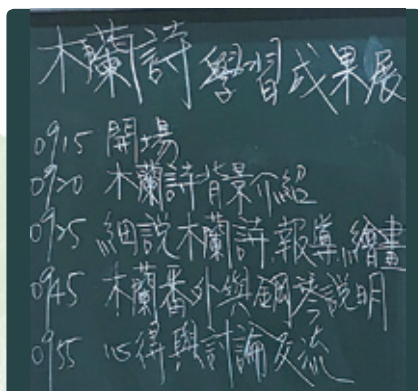 木蘭詩 學習成果展
0915 開場
0920 木蘭詩背景介紹
0925 細說木蘭詩、報導、繪畫
0945 木蘭番外與鋼琴說明
0955 心得與討論交流